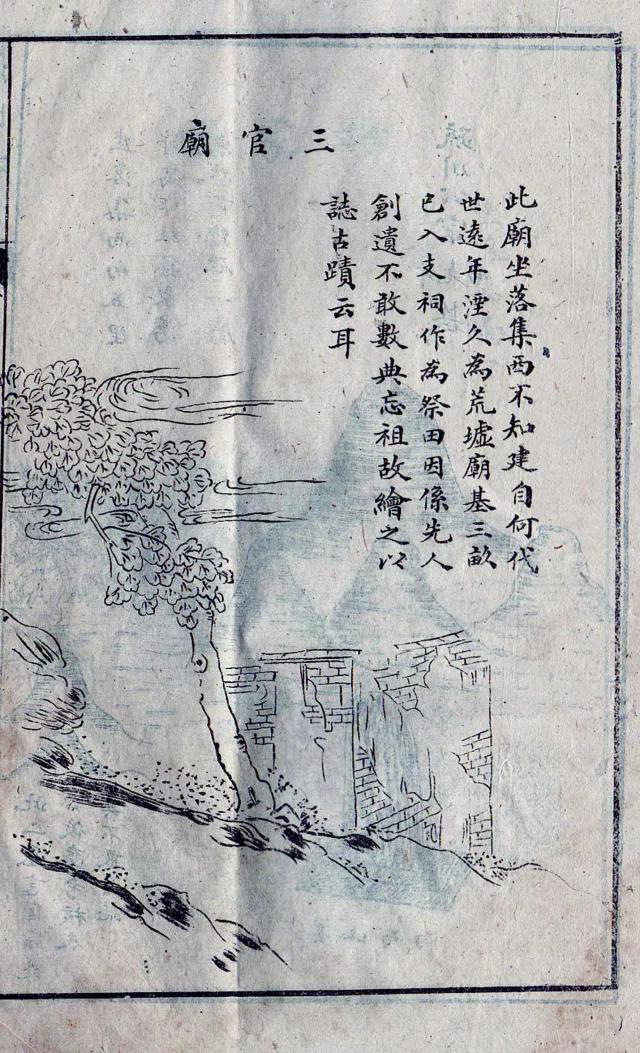 三官廟
此廟坐落集西不知建自何代
世遠年湮久為荒墟廟基三畝
已入支祠作為祭田因係先人
創遺不敢數典忘祖故繪之以
誌古蹟云耳